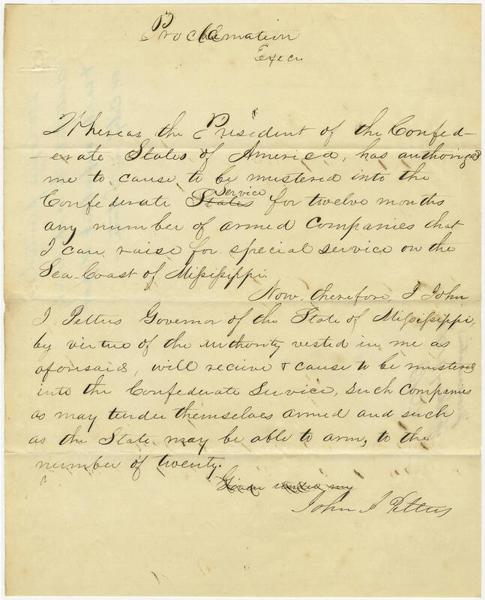 Proclamation
Execu
Whereas the President of the Confed-
-erate States of America, has authorized
me to cause to be mustered into the
Service
Confederate States for twelve months
any number of armed Companies that
I can raise for special service on the
Sea Coast of Missisippi.
Now, therefore, I John
J. Pettus Governor of the State of Missisippi,
by virtue of the authority vested in me as
aforesaid, will recieve & cause to be mustered
into the Confederate Service, such companies
as may tender themselves armed and such
as the State may be able to arm, to the
number of twenty.
Given under my
John J Pettus